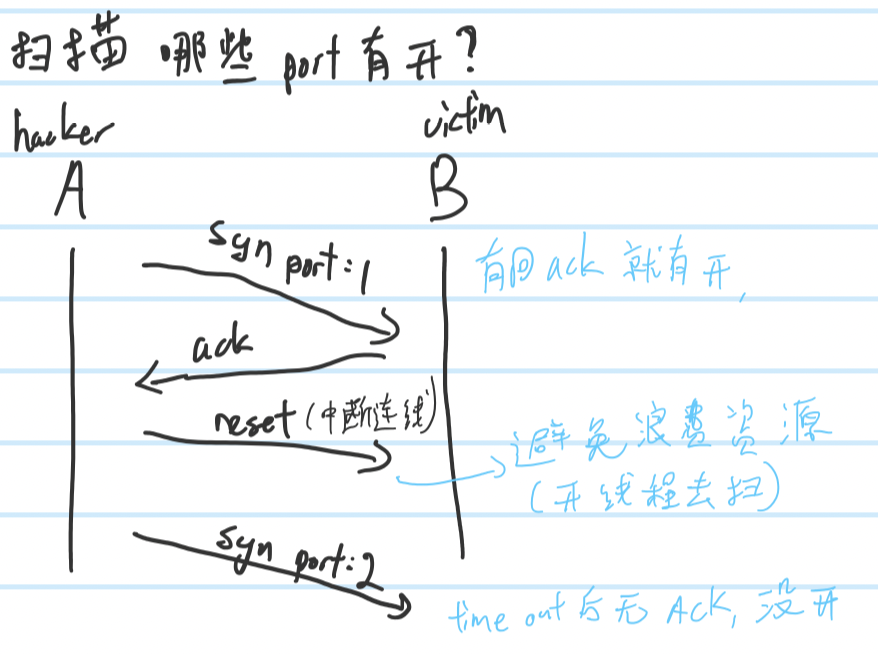 扫描 哪些 port 有开?
hacker
victim
A
B
syn port:1
有回ack 就有开,
ack
reset (中断连线)
避免浪费资源
(开线程去扫)
syn port:2
time out后无 ACK, 没开